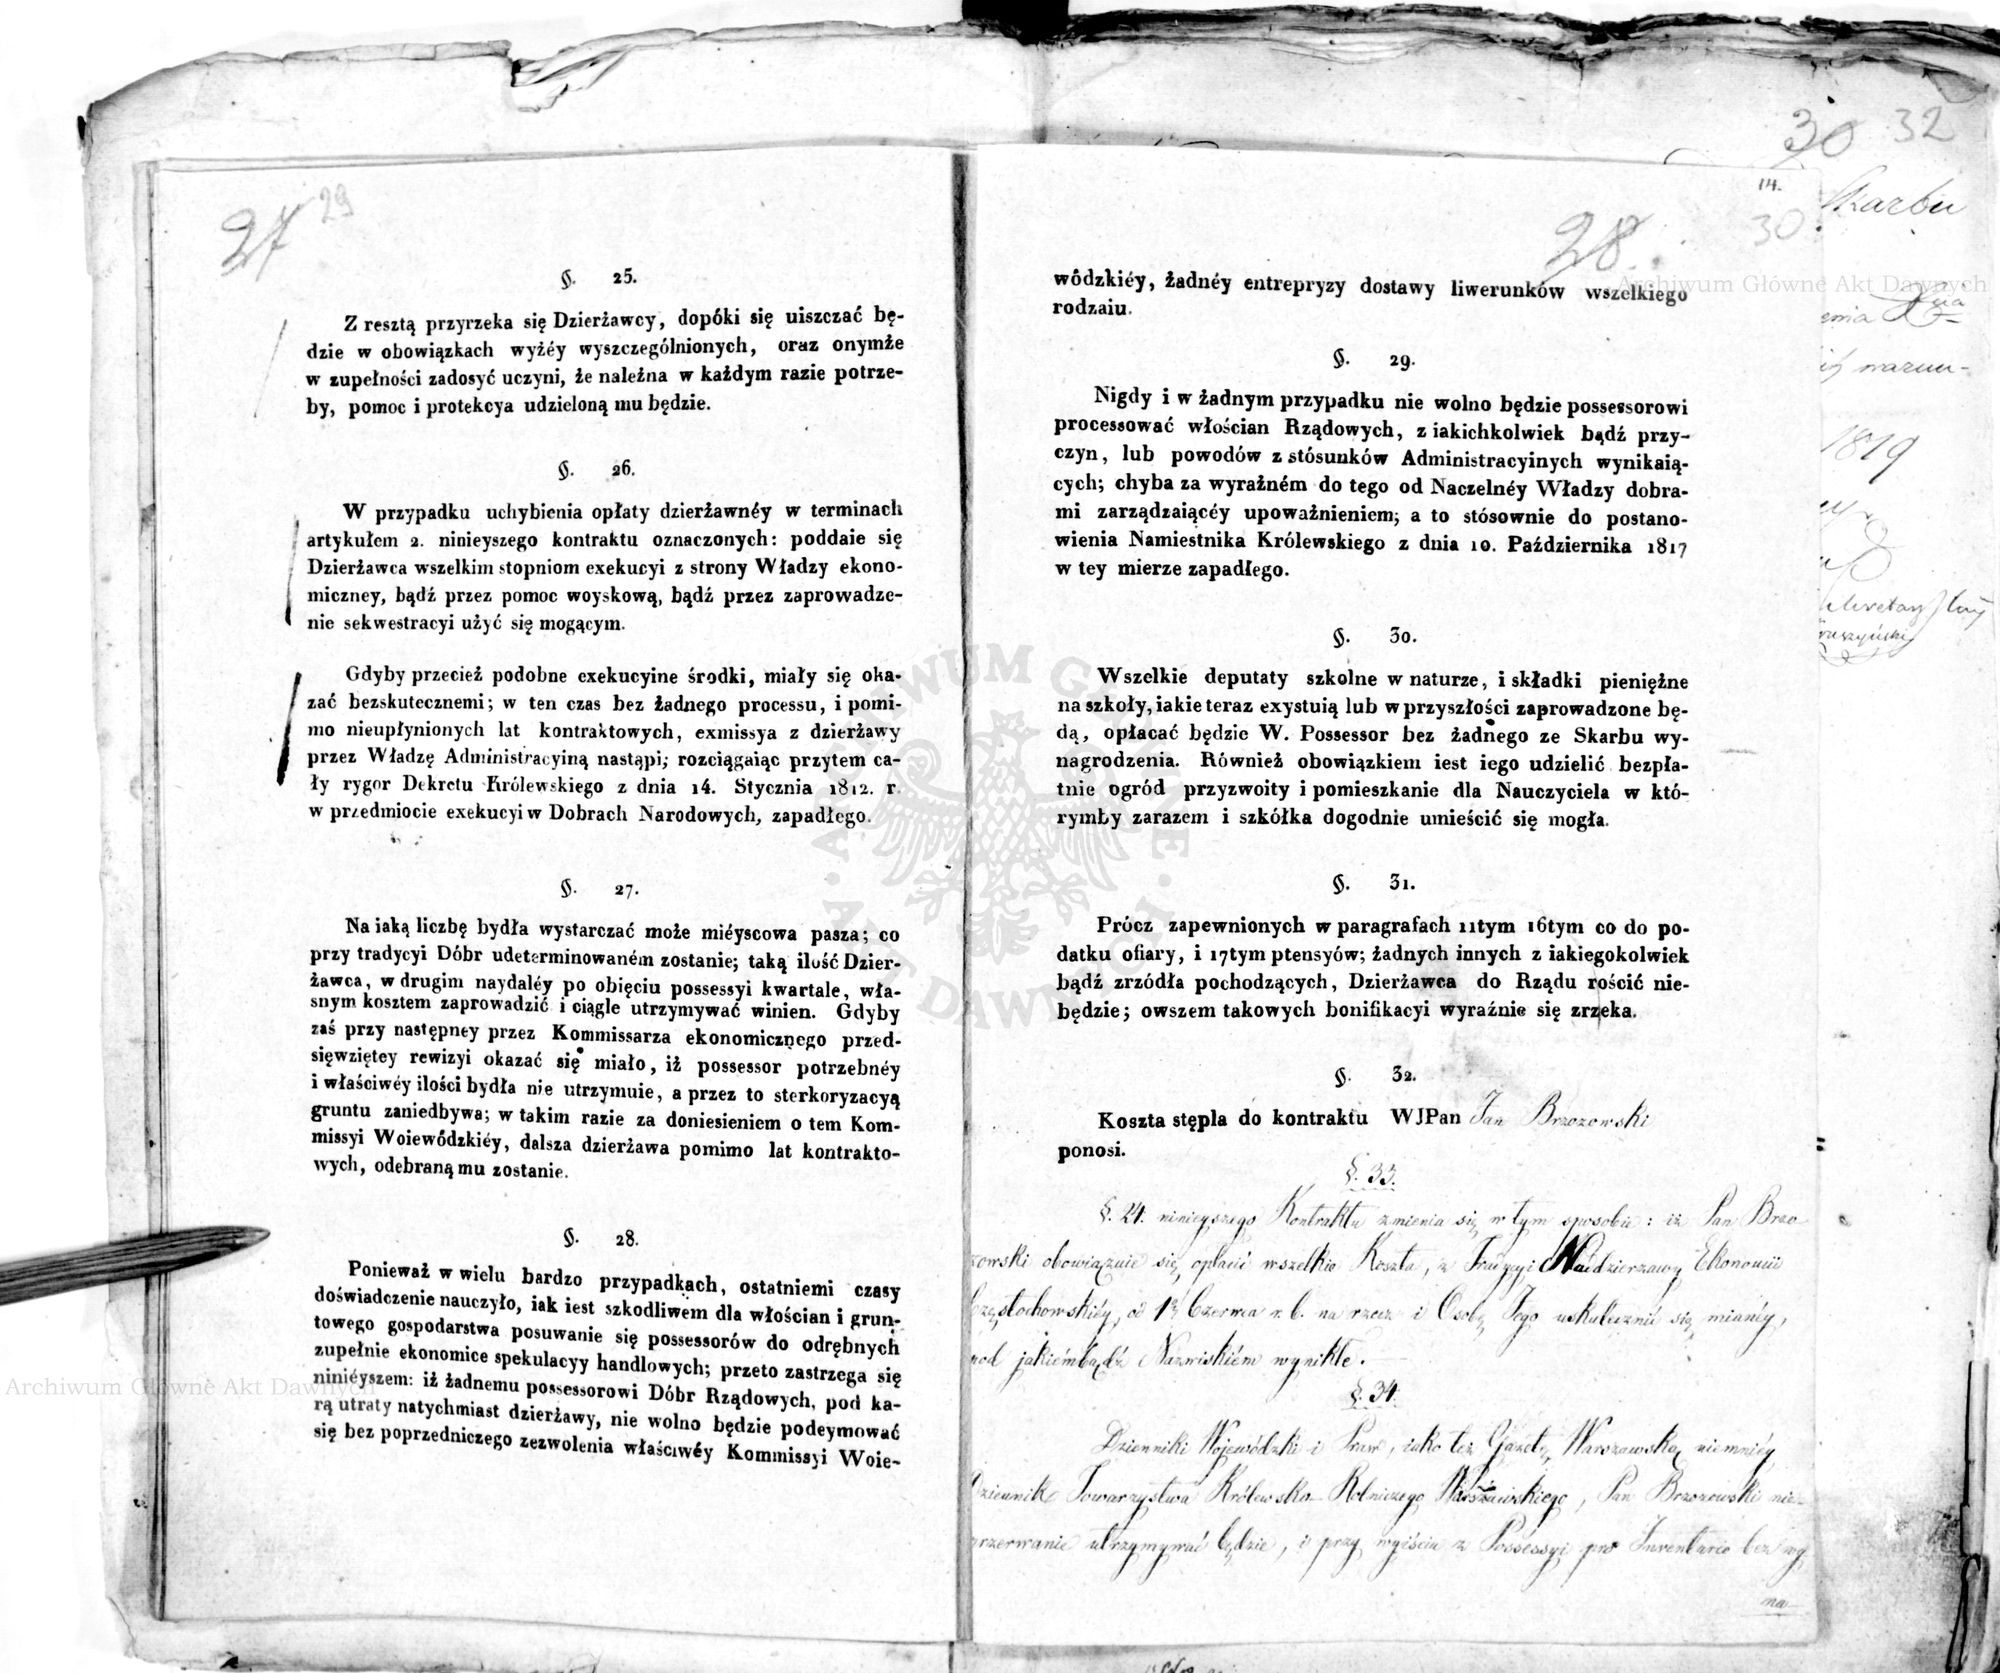 27 29
§. 25.
Z resztą przyrzeka się Dzierżawcy, dopóki się uiszczać bę-
dzie w obowiązkach wyżéy wyszczególnionych, oraz onymże
w zupełności zadosyć uczyni, że należna w każdym razie potrze-
by, pomoc i protekcya udzieloną mu będzie.
§. 26.
W przypadku uchybienia opłaty dzierżawnéy w terminach
artykułem 2. ninieyszego kontraktu oznaczonych: poddaie się
Dzierżawca wszelkim stopniom exekucyi z strony Władzy ekono-
miczney, bądź przez pomoc woyskową, bądź przez zaprowadze-
nie sekwestracyi użyć się mogącym.
Gdyby przecież podobne exekucyine środki, miały się oka-
zać bezskutecznemi; w ten czas bez żadnego processu, i pomi-
mo nieupłynionych lat kontraktowych, exmissya z dzierżawy
przez Władzę Administracyiną nastąpi; rozciągaiąc przytem ca-
ły rygor Dekretu Królewskiego z dnia 14. Stycznia 1812. r.
w przedmiocie exekucyi w Dobrach Narodowych, zapadłego.
§. 27.
Na iaką liczbę bydła wystarczać może miéyscowa pasza; co
przy tradycyi Dóbr udeterminowaném zostanie; taką ilość Dzier-
żawca, w drugim naydaléy po obięciu possessyi kwartale, wła-
snym kosztem zaprowadzić i ciągle utrzymywać winien. Gdyby
zaś przy następney przez Kommissarza ekonomicznego przed-
sięwziętey rewizyi okazać się miało, iż possessor potrzebnéy
i właściwéy ilości bydła nie utrzymuie, a przez to sterkoryzacyą
gruntu zaniedbywa; w takim razie za doniesieniem o tem Kom-
missyi Woiewódzkiéy, dalsza dzierżawa pomimo lat kontrakto-
wych, odebraną mu zostanie.
§. 28.
Ponieważ w wielu bardzo przypadkach, ostatniemi czasy
doświadczenie nauczyło, iak iest szkodliwem dla włościan i grun-
towego gospodarstwa posuwanie się possessorów do odrębnych
zupełnie ekonomice spekulacyy handlowych; przeto zastrzega się
niniéyszem: iż żadnemu possessorowi Dóbr Rządowych, pod ka-
rą utraty natychmiast dzierżawy, nie wolno będzie podeymować
się bez poprzedniczego zezwolenia właściwéy Kommissyi Woie-
30 32
14.
28. 30
wódzkiéy, żadnéy entrepryzy dostawy liwerunków wszelkiego
rodzaiu.
§. 29.
Nigdy i w żadnym przypadku nie wolno będzie possessorowi
processować włościan Rządowych, z iakichkolwiek bądź przy-
czyn, lub powodów z stósunków Administracyinych wynikaią-
cych; chyba za wyraźném do tego od Naczelnéy Władzy dobra-
mi zarządzaiącéy upoważnieniem; a to stósownie do postano-
wienia Namiestnika Królewskiego z dnia 10. Października 1817
w tey mierze zapadłego.
§. 30.
Wszelkie deputaty szkolne w naturze, i składki pieniężne
na szkoły, iakie teraz exystuią lub w przyszłości zaprowadzone bę-
dą, opłacać będzie W. Possessor bez żadnego ze Skarbu wy-
nagrodzenia. Również obowiązkiem iest iego udzielić bezpła-
tnie ogród przyzwoity i pomieszkanie dla Nauczyciela w któ-
rymby zarazem i szkółka dogodnie umieścić się mogła.
§. 31.
Prócz zapewnionych w paragrafach 11tym 16tym co do po-
datku ofiary, i 17tym ptensyów; żadnych innych z iakiegokolwiek
bądź zrzódła pochodzących, Dzierżawca do Rządu rościć nie-
będzie; owszem takowych bonifikacyi wyraźnie się zrzeka.
§. 32.
Koszta stępla do kontraktu WJPan Jan Brzozowski
ponosi.
§. 33.
§. 24. ninieyszego Kontraktu zmienia się w tym sposobie: iż Pan Brzo-
zowski obowiązuie się opłacić wszelkie Koszta, z Tradycyi Naddzierzawy Ekonomii
Częstochowskiéy, od 1. Czerwca r. b. na rzecz i Osobę Jego uskutecznić się mianéy,
pod jakiémbądź Nazwiskiém wynikłe.
§. 34.
Dzienniki Wojewódzki i Praw, iako też Gazetę Warszawską niemniéy
Dziennik Towarzystwa Królewsko Rolniczego Warszawskiego, Pan Brzozowski nie-
przerwanie utrzymywać będzie, i przy wyiściu z Possessyi pro Inventario bez wy
na
Skarbu
warun-
1819
Sekretarz
Archiwum Główne Akt Dawnych
Archiwum Główne Akt Dawnych
ARCHIWUM GŁÓWNE AKT DAWNYCH